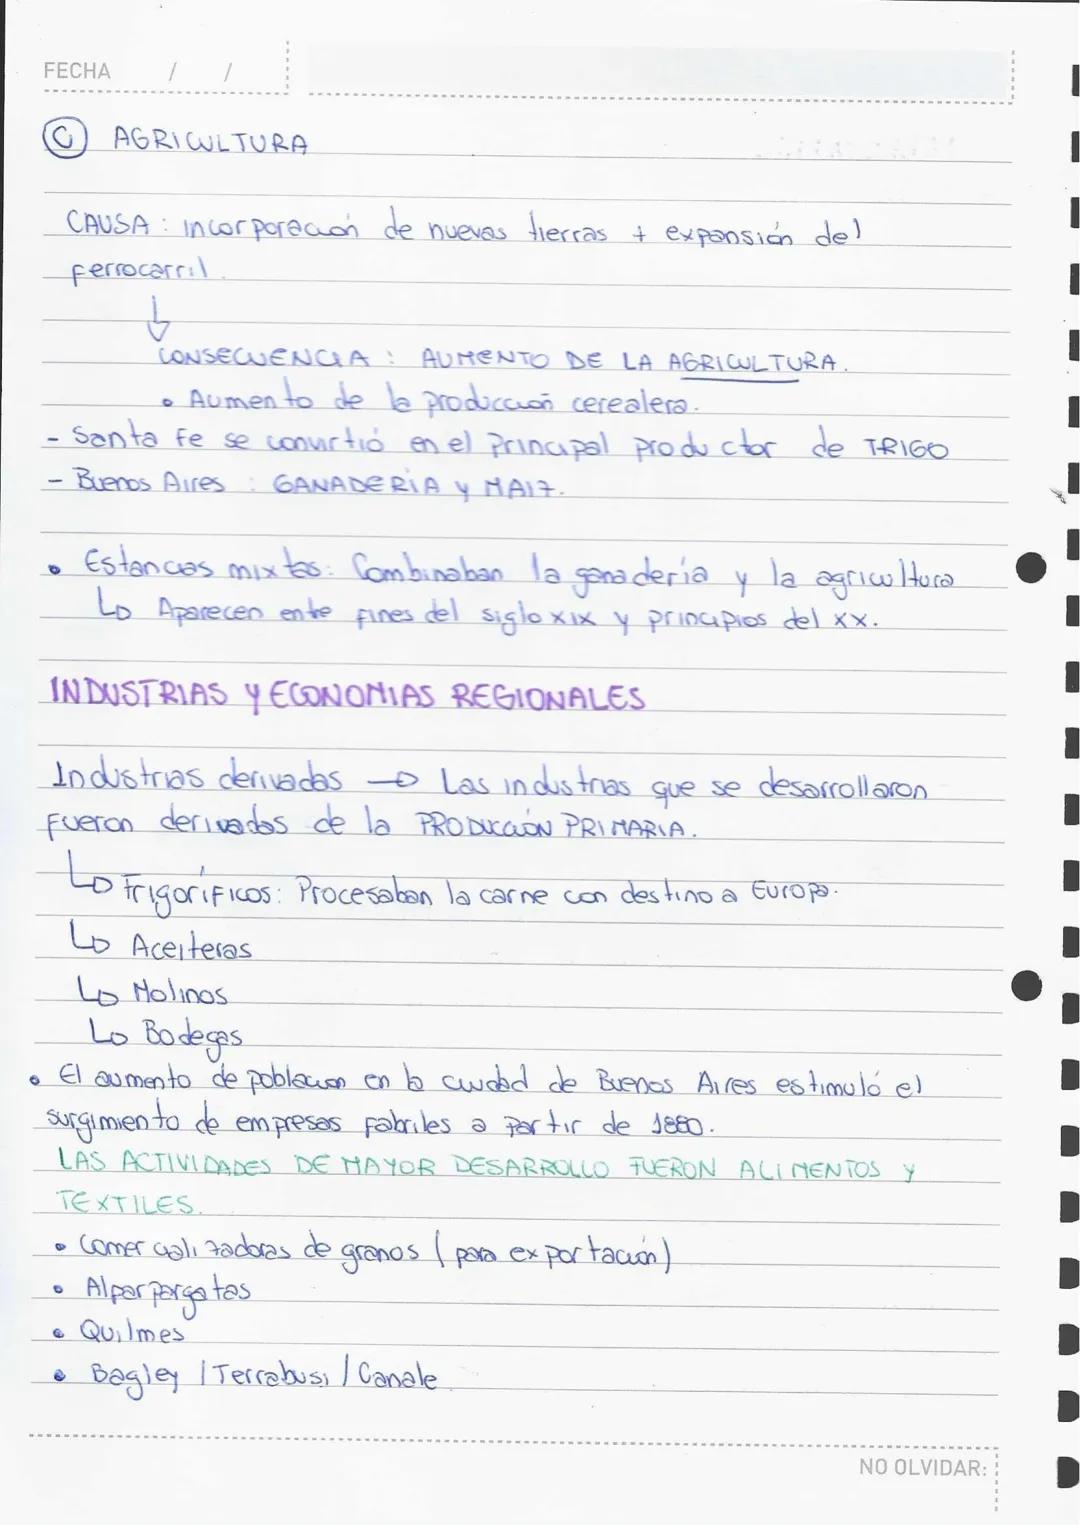 FECHA / /
C AGRICULTURA
CAUSA: incorporación de nuevas tierras + expansión del
ferrocarril.
CONSECUENCIA: AUMENTO DE LA AGRICULTURA.
• Aumento de la producción cerealera.
- Santa Fe se convirtió en el principal productor de TRIGO
- Buenos Aires: GANADERÍA y MAIZ.
• Estancias mixtas: Combinaban la ganadería y la agricultura
↳ Aparecen entre fines del siglo XIX y principios del XX.
INDUSTRIAS Y ECONOMIAS REGIONALES
Industrias derivadas → Las industrias que se desarrollaron
fueron derivadas de la PRODUCCIÓN PRIMARIA.
↳ Frigoríficos: Procesaban la carne con destino a Europa.
↳ Aceiteras
↳ Molinos
↳ Bodegas
• El aumento de poblacion en la ciudad de Buenos Aires estimuló el
surgimiento de empresas fabriles a partir de 1880.
LAS ACTIVIDADES DE MAYOR DESARROLLO FUERON ALIMENTOS Y
TEXTILES.
• Comercializadoras de granos (para exportación)
• Alparpargatas
• Quilmes
• Bagley / Terrabusi / Canale
NO OLVIDAR: